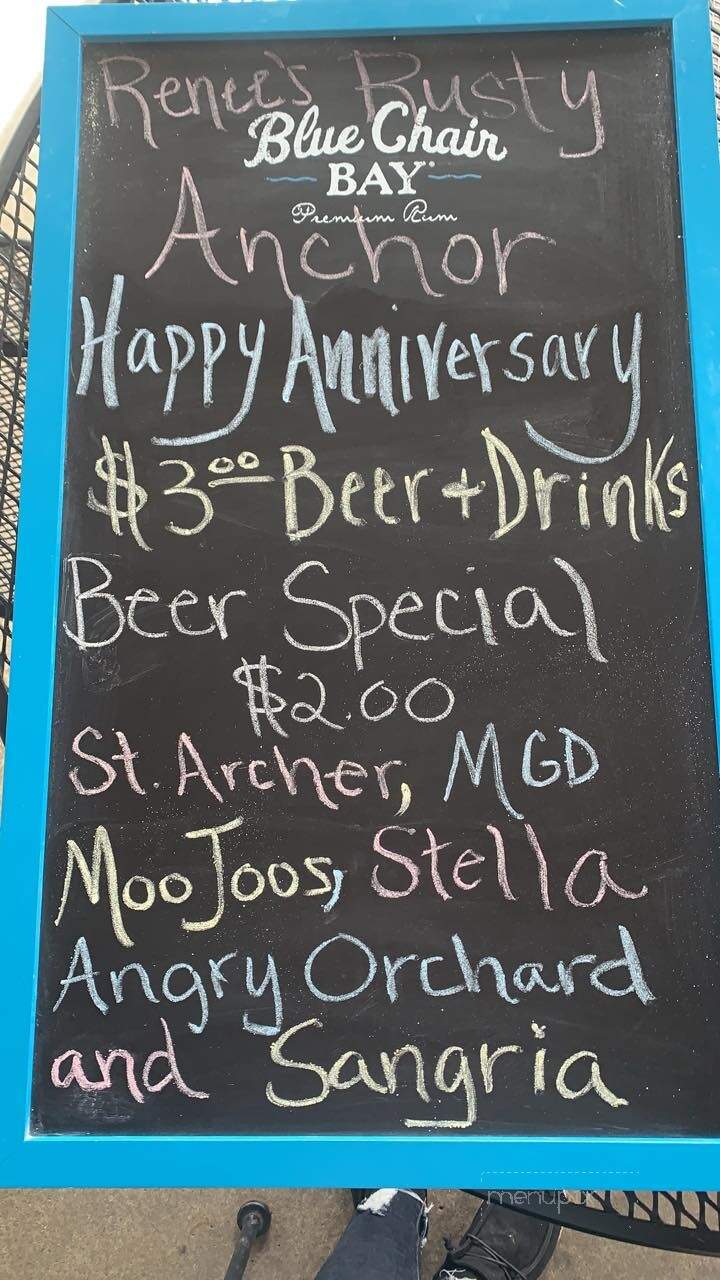 Renee's Rusty
Blue Chair
BAY
Premium Rum
Anchor
Happy Anniversary
$3⁰⁰ Beer + Drinks
Beer Special
$2.00
St. Archer, MGD
Moo Joos, Stella
Angry Orchard
and Sangria